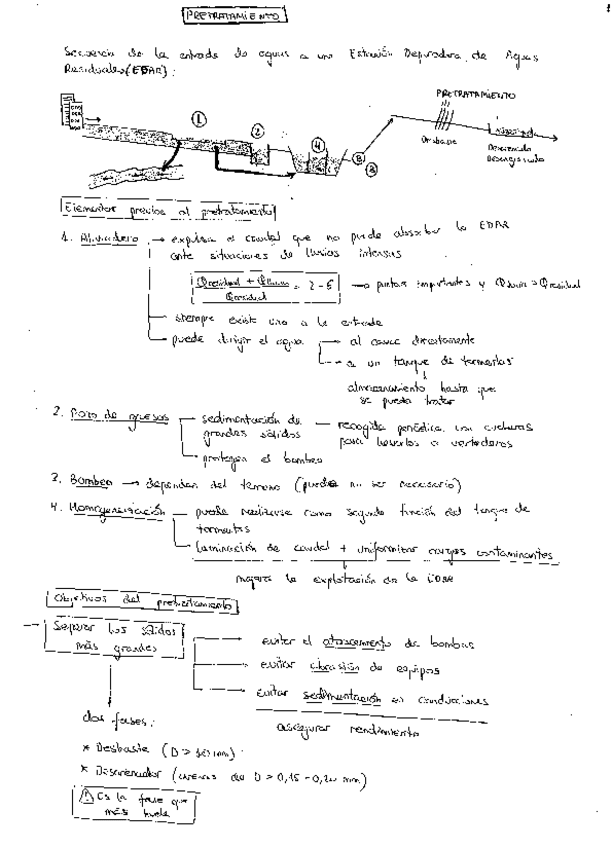 1
PRETRATAMIENTO
Secuencia de la entrada de aguas a una Estación Depuradora de Aguas
Residuales (EDAR):
PRETRATAMIENTO
1
2
4
3
3
Desbaste
Desarenado
Desengrasado
Elementos previos al pretratamiento
1. Aliviadero → expulsa el caudal que no puede absorber la EDAR
ante situaciones de lluvias intensas
Qresidual + Qlluvia / Qresidual = 2-5 → puntas importantes y Qlluvia > Qresidual
siempre existe uno a la entrada
puede dirigir el agua → al cauce directamente
→ a un tanque de tormentas
almacenamiento hasta que
se pueda tratar
2. Pozo de gruesos — sedimentación de
grandes sólidos — recogida periódica con cucharas
para llevarlos a vertederos
protegen el bombeo
3. Bombeo → dependen del terreno (puede no ser necesario)
4. Homogeneización — puede realizarse como segunda función del tanque de
tormentas
laminación de caudal + uniformizar cargas contaminantes
mejora la explotación de la EDAR
Objetivos del pretratamiento
Separar los sólidos
más grandes
→ evitar el atascamiento de bombas
→ evitar abrasión de equipos
→ evitar sedimentación en conducciones
asegurar rendimiento
dos fases:
* Desbaste (D > mm)
* Desarenador (arenas de D > 0,15 - 0,20 mm)
⚠ Es la fase que
más huele